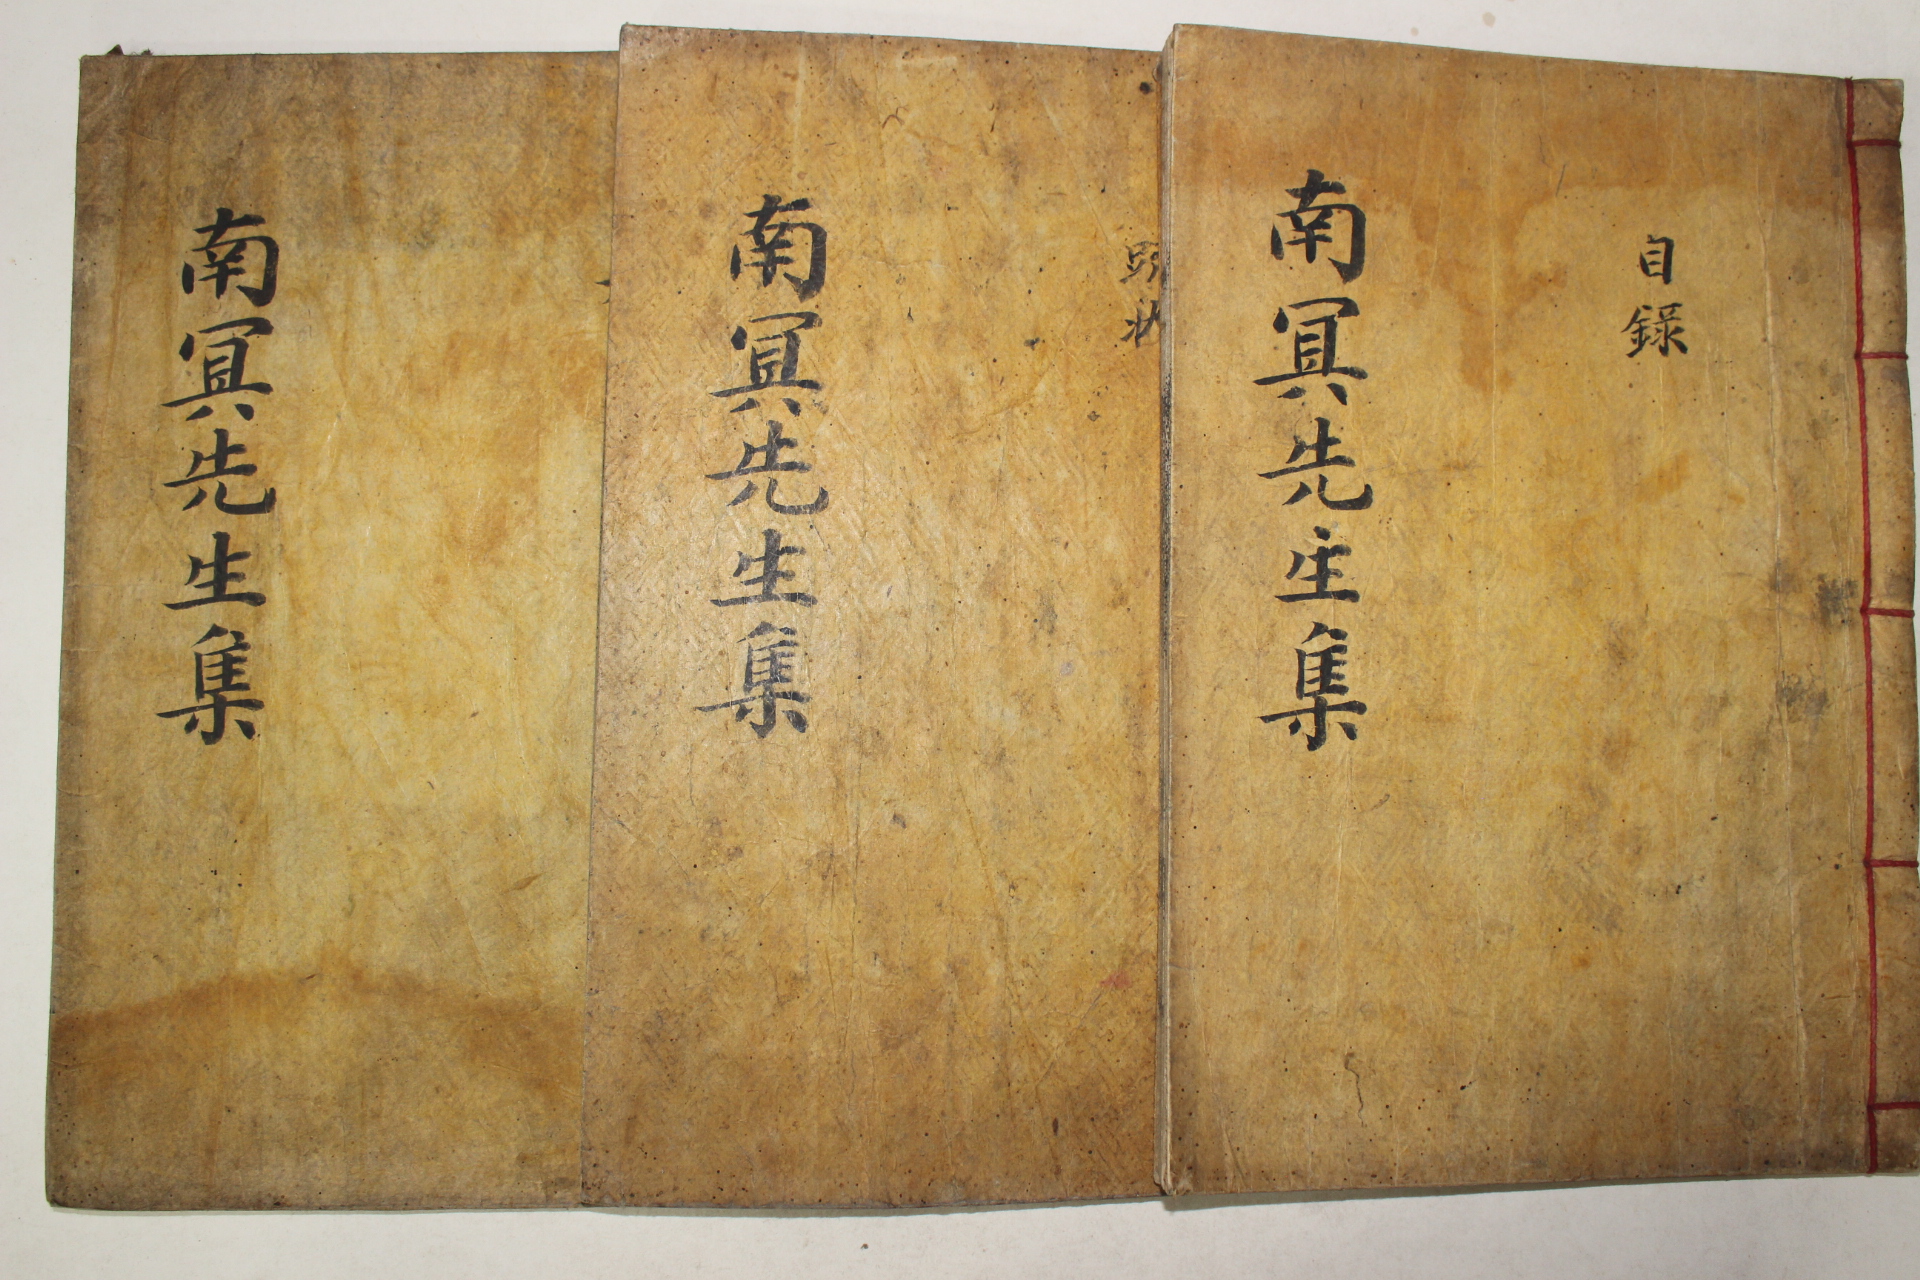 目錄
南冥先生集
南冥先生集
南冥先生集